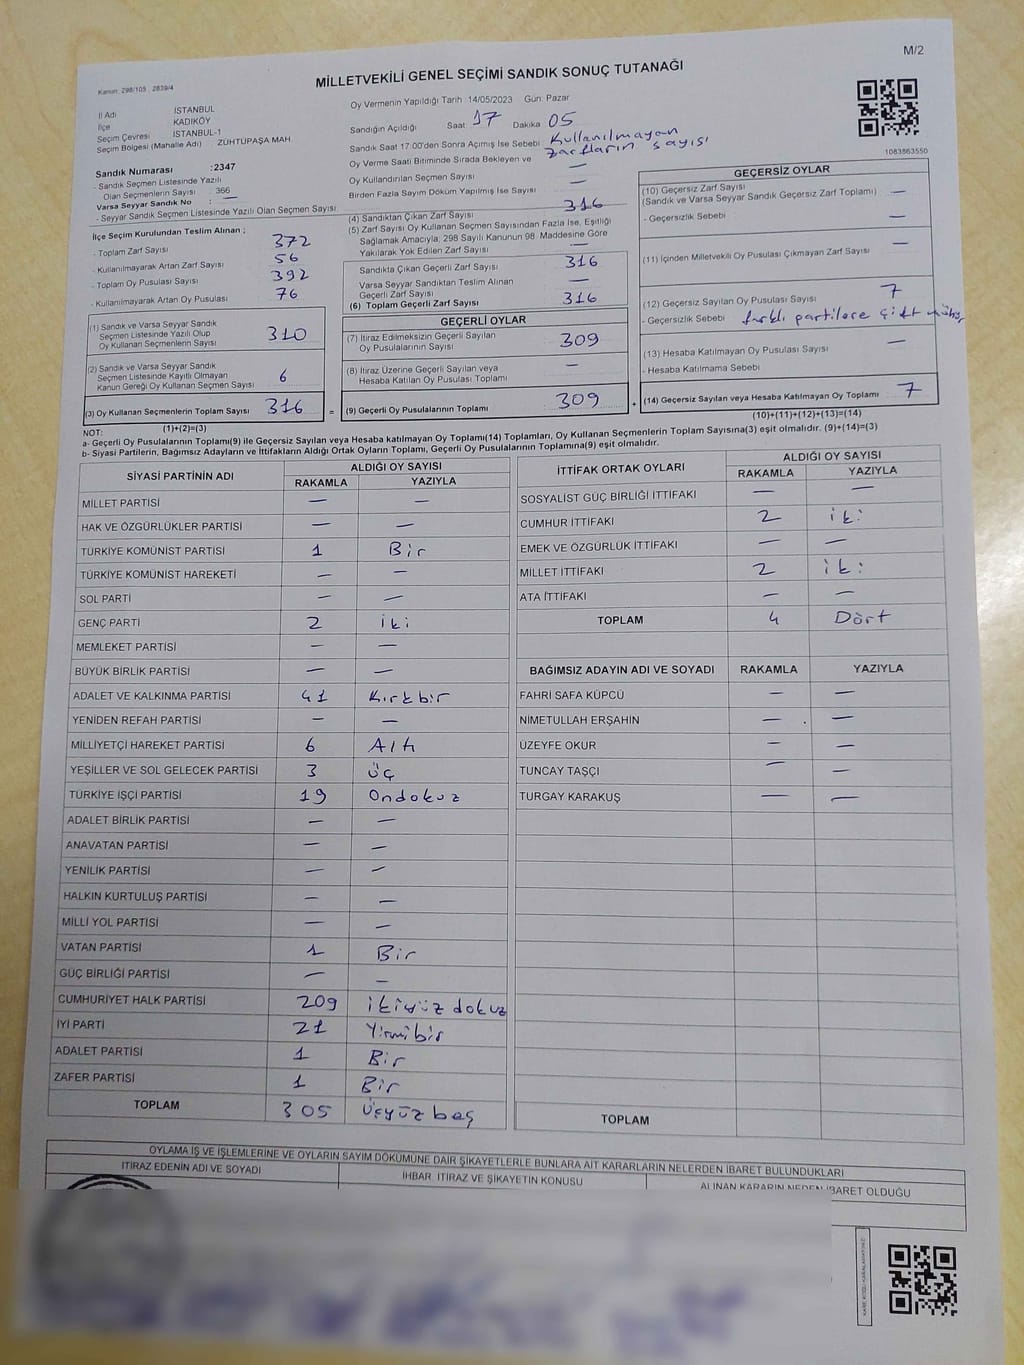 M/2
Kanun: 298/105 , 2839/4
MİLLETVEKİLİ GENEL SEÇİMİ SANDIK SONUÇ TUTANAĞI
İl Adı İSTANBUL
İlçe KADIKÖY
Seçim Çevresi İSTANBUL-1
Seçim Bölgesi (Mahalle Adı) ZÜHTÜPAŞA MAH
Sandık Numarası :2347
- Sandık Seçmen Listesinde Yazılı
Olan Seçmenlerin Sayısı : 366
Varsa Seyyar Sandık No : —
- Seyyar Sandık Seçmen Listesinde Yazılı Olan Seçmen Sayısı.
Oy Vermenin Yapıldığı Tarih :14/05/2023 Gün: Pazar
Sandığın Açıldığı Saat 17 Dakika 05
Sandık Saat 17:00'den Sonra Açımış İse Sebebi Kullanılmayan zarfların sayısı
Oy Verme Saati Bitiminde Sırada Bekleyen ve
Oy Kullandırılan Seçmen Sayısı —
Birden Fazla Sayım Döküm Yapılmış İse Sayısı —
1083863550
İlçe Seçim Kurulundan Teslim Alınan ;
- Toplam Zarf Sayısı 372
- Kullanılmayarak Artan Zarf Sayısı 56
- Toplam Oy Pusulası Sayısı 392
- Kullanılmayarak Artan Oy Pusulası 76
(1) Sandık ve Varsa Seyyar Sandık
Seçmen Listesinde Yazılı Olup
Oy Kullanan Seçmenlerin Sayısı 310
(2) Sandık ve Varsa Seyyar Sandık
Seçmen Listesinde Kayıtlı Olmayan
Kanun Gereği Oy Kullanan Seçmen Sayısı 6
(3) Oy Kullanan Seçmenlerin Toplam Sayısı 316 =
(1)+(2)=(3)
(4) Sandıktan Çıkan Zarf Sayısı 316
(5) Zarf Sayısı Oy Kullanan Seçmen Sayısından Fazla İse, Eşitliği
Sağlamak Amacıyla, 298 Sayılı Kanunun 98. Maddesine Göre
Yakılarak Yok Edilen Zarf Sayısı —
Sandıkta Çıkan Geçerli Zarf Sayısı 316
Varsa Seyyar Sandıktan Teslim Alınan
Geçerli Zarf Sayısı —
(6) Toplam Geçerli Zarf Sayısı 316
GEÇERLİ OYLAR
(7) İtiraz Edilmeksizin Geçerli Sayılan
Oy Pusulalarının Sayısı 309
(8) İtiraz Üzerine Geçerli Sayılan veya
Hesaba Katılan Oy Pusulası Toplamı —
(9) Geçerli Oy Pusulalarının Toplamı 309 +
GEÇERSİZ OYLAR
(10) Geçersiz Zarf Sayısı
(Sandık ve Varsa Seyyar Sandık Geçersiz Zarf Toplamı) —
- Geçersizlik Sebebi —
(11) İçinden Milletvekili Oy Pusulası Çıkmayan Zarf Sayısı —
(12) Geçersiz Sayılan Oy Pusulası Sayısı 7
- Geçersizlik Sebebi farklı partilere çift mühür
(13) Hesaba Katılmayan Oy Pusulası Sayısı —
- Hesaba Katılmama Sebebi
(14) Geçersiz Sayılan veya Hesaba Katılmayan Oy Toplamı 7
(10)+(11)+(12)+(13)=(14)
NOT:
a- Geçerli Oy Pusulalarının Toplamı(9) ile Geçersiz Sayılan veya Hesaba katılmayan Oy Toplamı(14) Toplamları, Oy Kullanan Seçmenlerin Toplam Sayısına(3) eşit olmalıdır. (9)+(14)=(3)
b- Siyasi Partilerin, Bağımsız Adayların ve İttifakların Aldığı Ortak Oyların Toplamı, Geçerli Oy Pusulalarının Toplamına(9) eşit olmalıdır.
SİYASİ PARTİNİN ADI ALDIĞI OY SAYISI
RAKAMLA YAZIYLA
MİLLET PARTİSİ — —
HAK VE ÖZGÜRLÜKLER PARTİSİ — —
TÜRKİYE KOMÜNİST PARTİSİ 1 Bir
TÜRKİYE KOMÜNİST HAREKETİ — —
SOL PARTİ — —
GENÇ PARTİ 2 iki
MEMLEKET PARTİSİ — —
BÜYÜK BİRLİK PARTİSİ — —
ADALET VE KALKINMA PARTİSİ 41 Kırkbir
YENİDEN REFAH PARTİSİ — —
MİLLİYETÇİ HAREKET PARTİSİ 6 Altı
YEŞİLLER VE SOL GELECEK PARTİSİ 3 üç
TÜRKİYE İŞÇİ PARTİSİ 19 Ondokuz
ADALET BİRLİK PARTİSİ — —
ANAVATAN PARTİSİ — —
YENİLİK PARTİSİ — —
HALKIN KURTULUŞ PARTİSİ — —
MİLLİ YOL PARTİSİ — —
VATAN PARTİSİ 1 Bir
GÜÇ BİRLİĞİ PARTİSİ — —
CUMHURİYET HALK PARTİSİ 209 ikiyüz dokuz
İYİ PARTİ 21 Yirmibir
ADALET PARTİSİ 1 Bir
ZAFER PARTİSİ 1 Bir
TOPLAM 305 Üçyüz beş
İTTİFAK ORTAK OYLARI ALDIĞI OY SAYISI
RAKAMLA YAZIYLA
SOSYALİST GÜÇ BİRLİĞİ İTTİFAKI — —
CUMHUR İTTİFAKI 2 iki
EMEK VE ÖZGÜRLÜK İTTİFAKI — —
MİLLET İTTİFAKI 2 iki
ATA İTTİFAKI — —
TOPLAM 4 Dört
BAĞIMSIZ ADAYIN ADI VE SOYADI RAKAMLA YAZIYLA
FAHRİ SAFA KÜPCÜ — —
NİMETULLAH ERŞAHİN — —
ÜZEYFE OKUR — —
TUNCAY TAŞÇI — —
TURGAY KARAKUŞ — —
TOPLAM
OYLAMA İŞ VE İŞLEMLERİNE VE OYLARIN SAYIM DÖKÜMÜNE DAİR ŞİKAYETLERLE BUNLARA AİT KARARLARIN NELERDEN İBARET BULUNDUKLARI
İTİRAZ EDENİN ADI VE SOYADI
İHBAR İTİRAZ VE ŞİKAYETİN KONUSU
ALINAN KARARIN NEDEN İBARET OLDUĞU